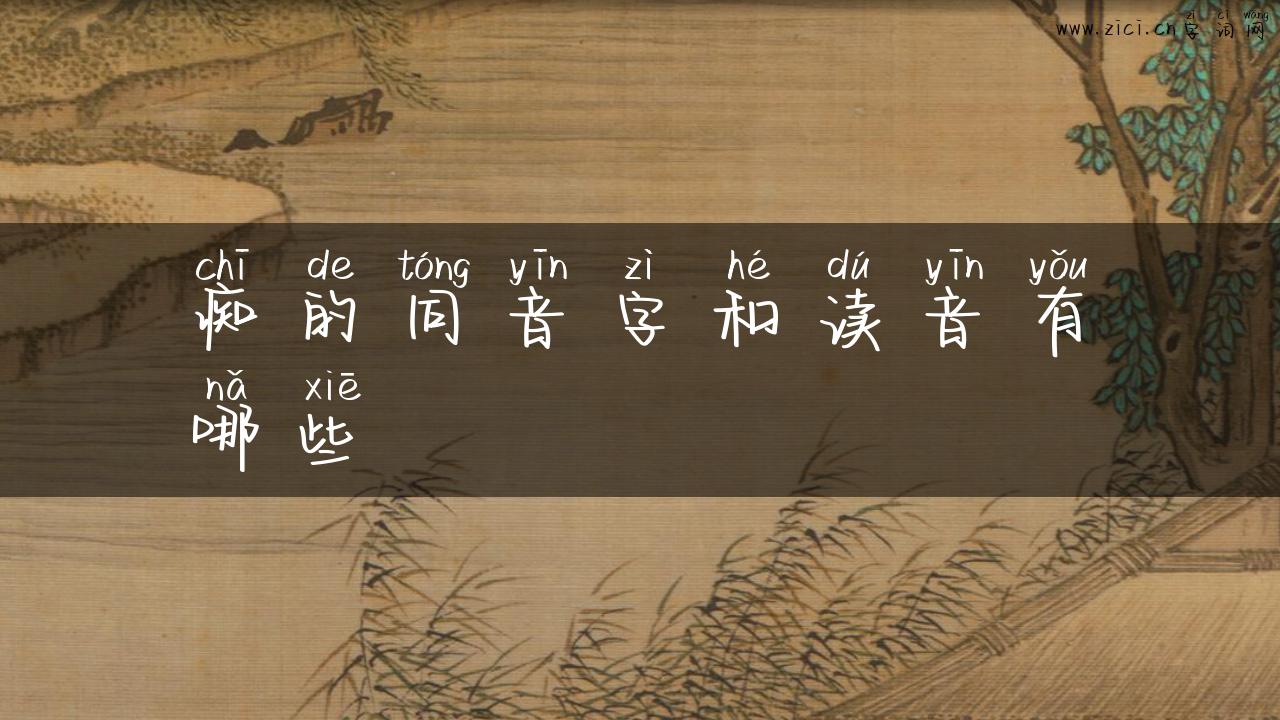 zì cí wǎng
www.zici.cn字词网
chī de tóng yīn zì hé dú yīn yǒu
痴的同音字和读音有
nǎ xiē
哪些